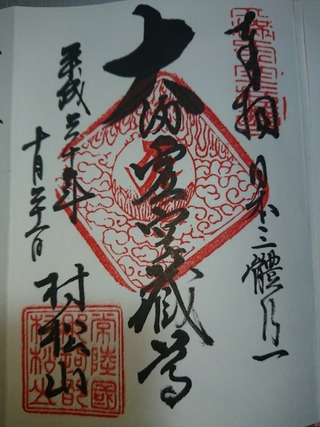 奉拝
日本三體乃一
大満虚空蔵尊
平成三十年
十月
村松山
常陸國
村松山